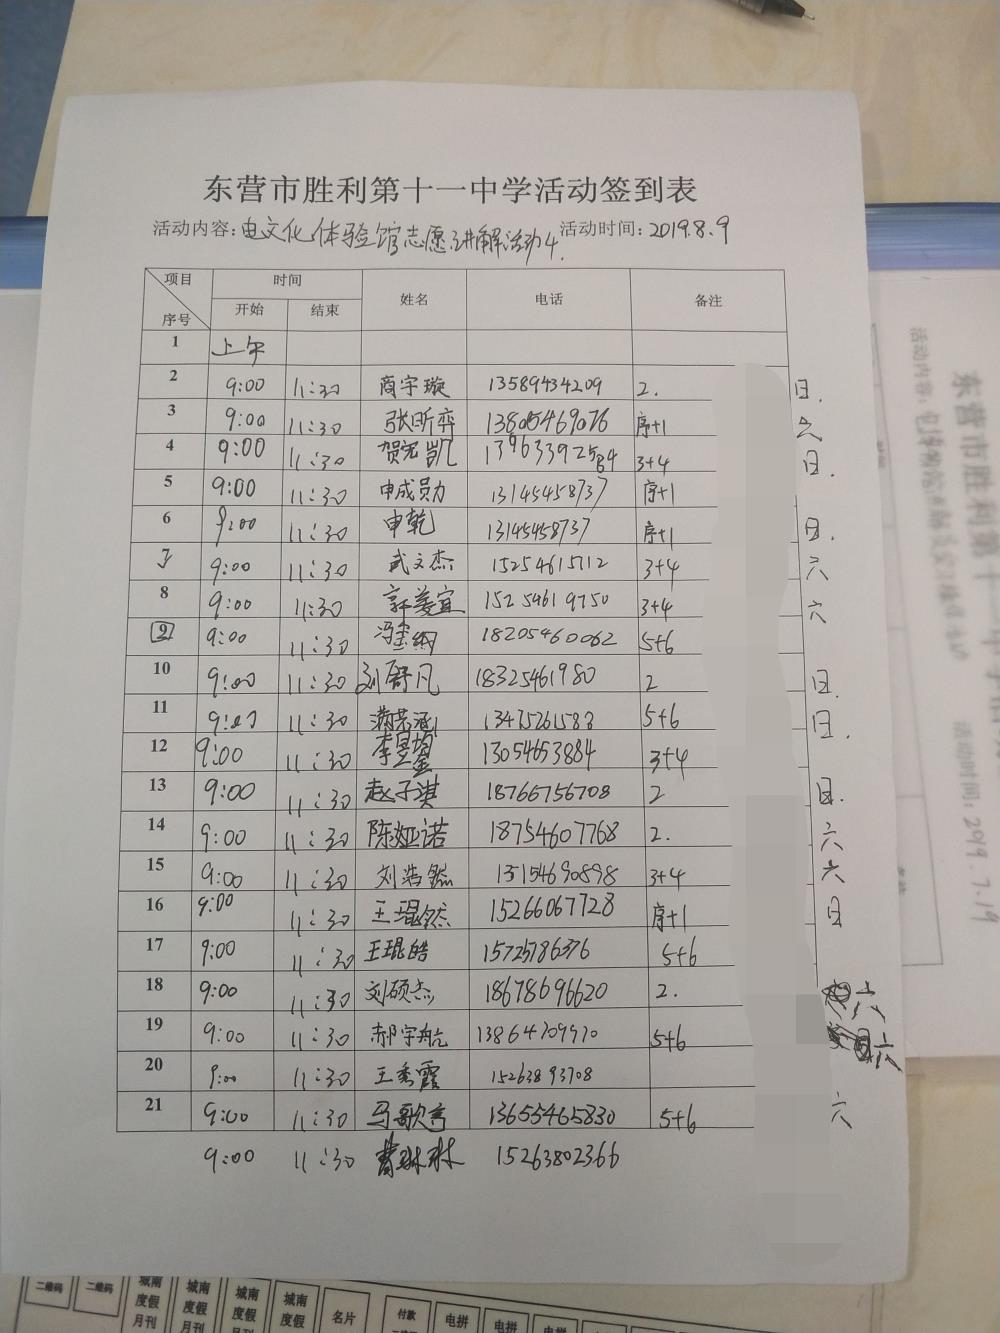 东营市胜利第十一中学活动签到表
活动内容:电文化体验馆志愿讲解活动4. 活动时间:2019.8.9
项目 时间 姓名 电话 备注
序号 开始 结束
1 上午
2 9:00 11:30 商宇璇 13589434209 2. 日.
3 9:00 11:30 张昕弈 13805469076 序+1 六
4 9:00 11:30 贺宪凯 13963392584 3+4 日.
5 9:00 11:30 申成勋 13145458737 序+1
6 9:00 11:30 申乾 13145458737 序+1 日.
7 9:00 11:30 武文杰 15254615712 3+4 六
8 9:00 11:30 郭姜宜 15254619750 3+4 六
9 9:00 11:30 18205460062 5+6
10 9:00 11:30 刘舒凡 18325461980 2 日.
11 9:00 11:30 13475261583 5+6 日.
12 9:00 11:30 李昱 13054653884 3+4
13 9:00 11:30 赵子淇 18766756708 2 日.
14 9:00 11:30 陈娅诺 18754607768 2. 六
15 9:00 11:30 刘浩然 13154690898 3+4 六
16 9:00 11:30 王琨然 15266067728 序+1 日
17 9:00 11:30 王琨皓 15725786376 5+6
18 9:00 11:30 刘硕杰 18678696620 2. 六
19 9:00 11:30 郝宇航 13864709970 5+6 六
20 9:00 11:30 王秀霞 15263893708
21 9:00 11:30 马歌言 13655465830 5+6 六
9:00 11:30 曹琳琳 15263802366
东营市胜利第十一中学
活动内容:
活动时间:2019.7.19
二维码 二维码 城南度假月刊 城南度假月刊 城南度假 城南度假 名片 付款 电拼 电拼